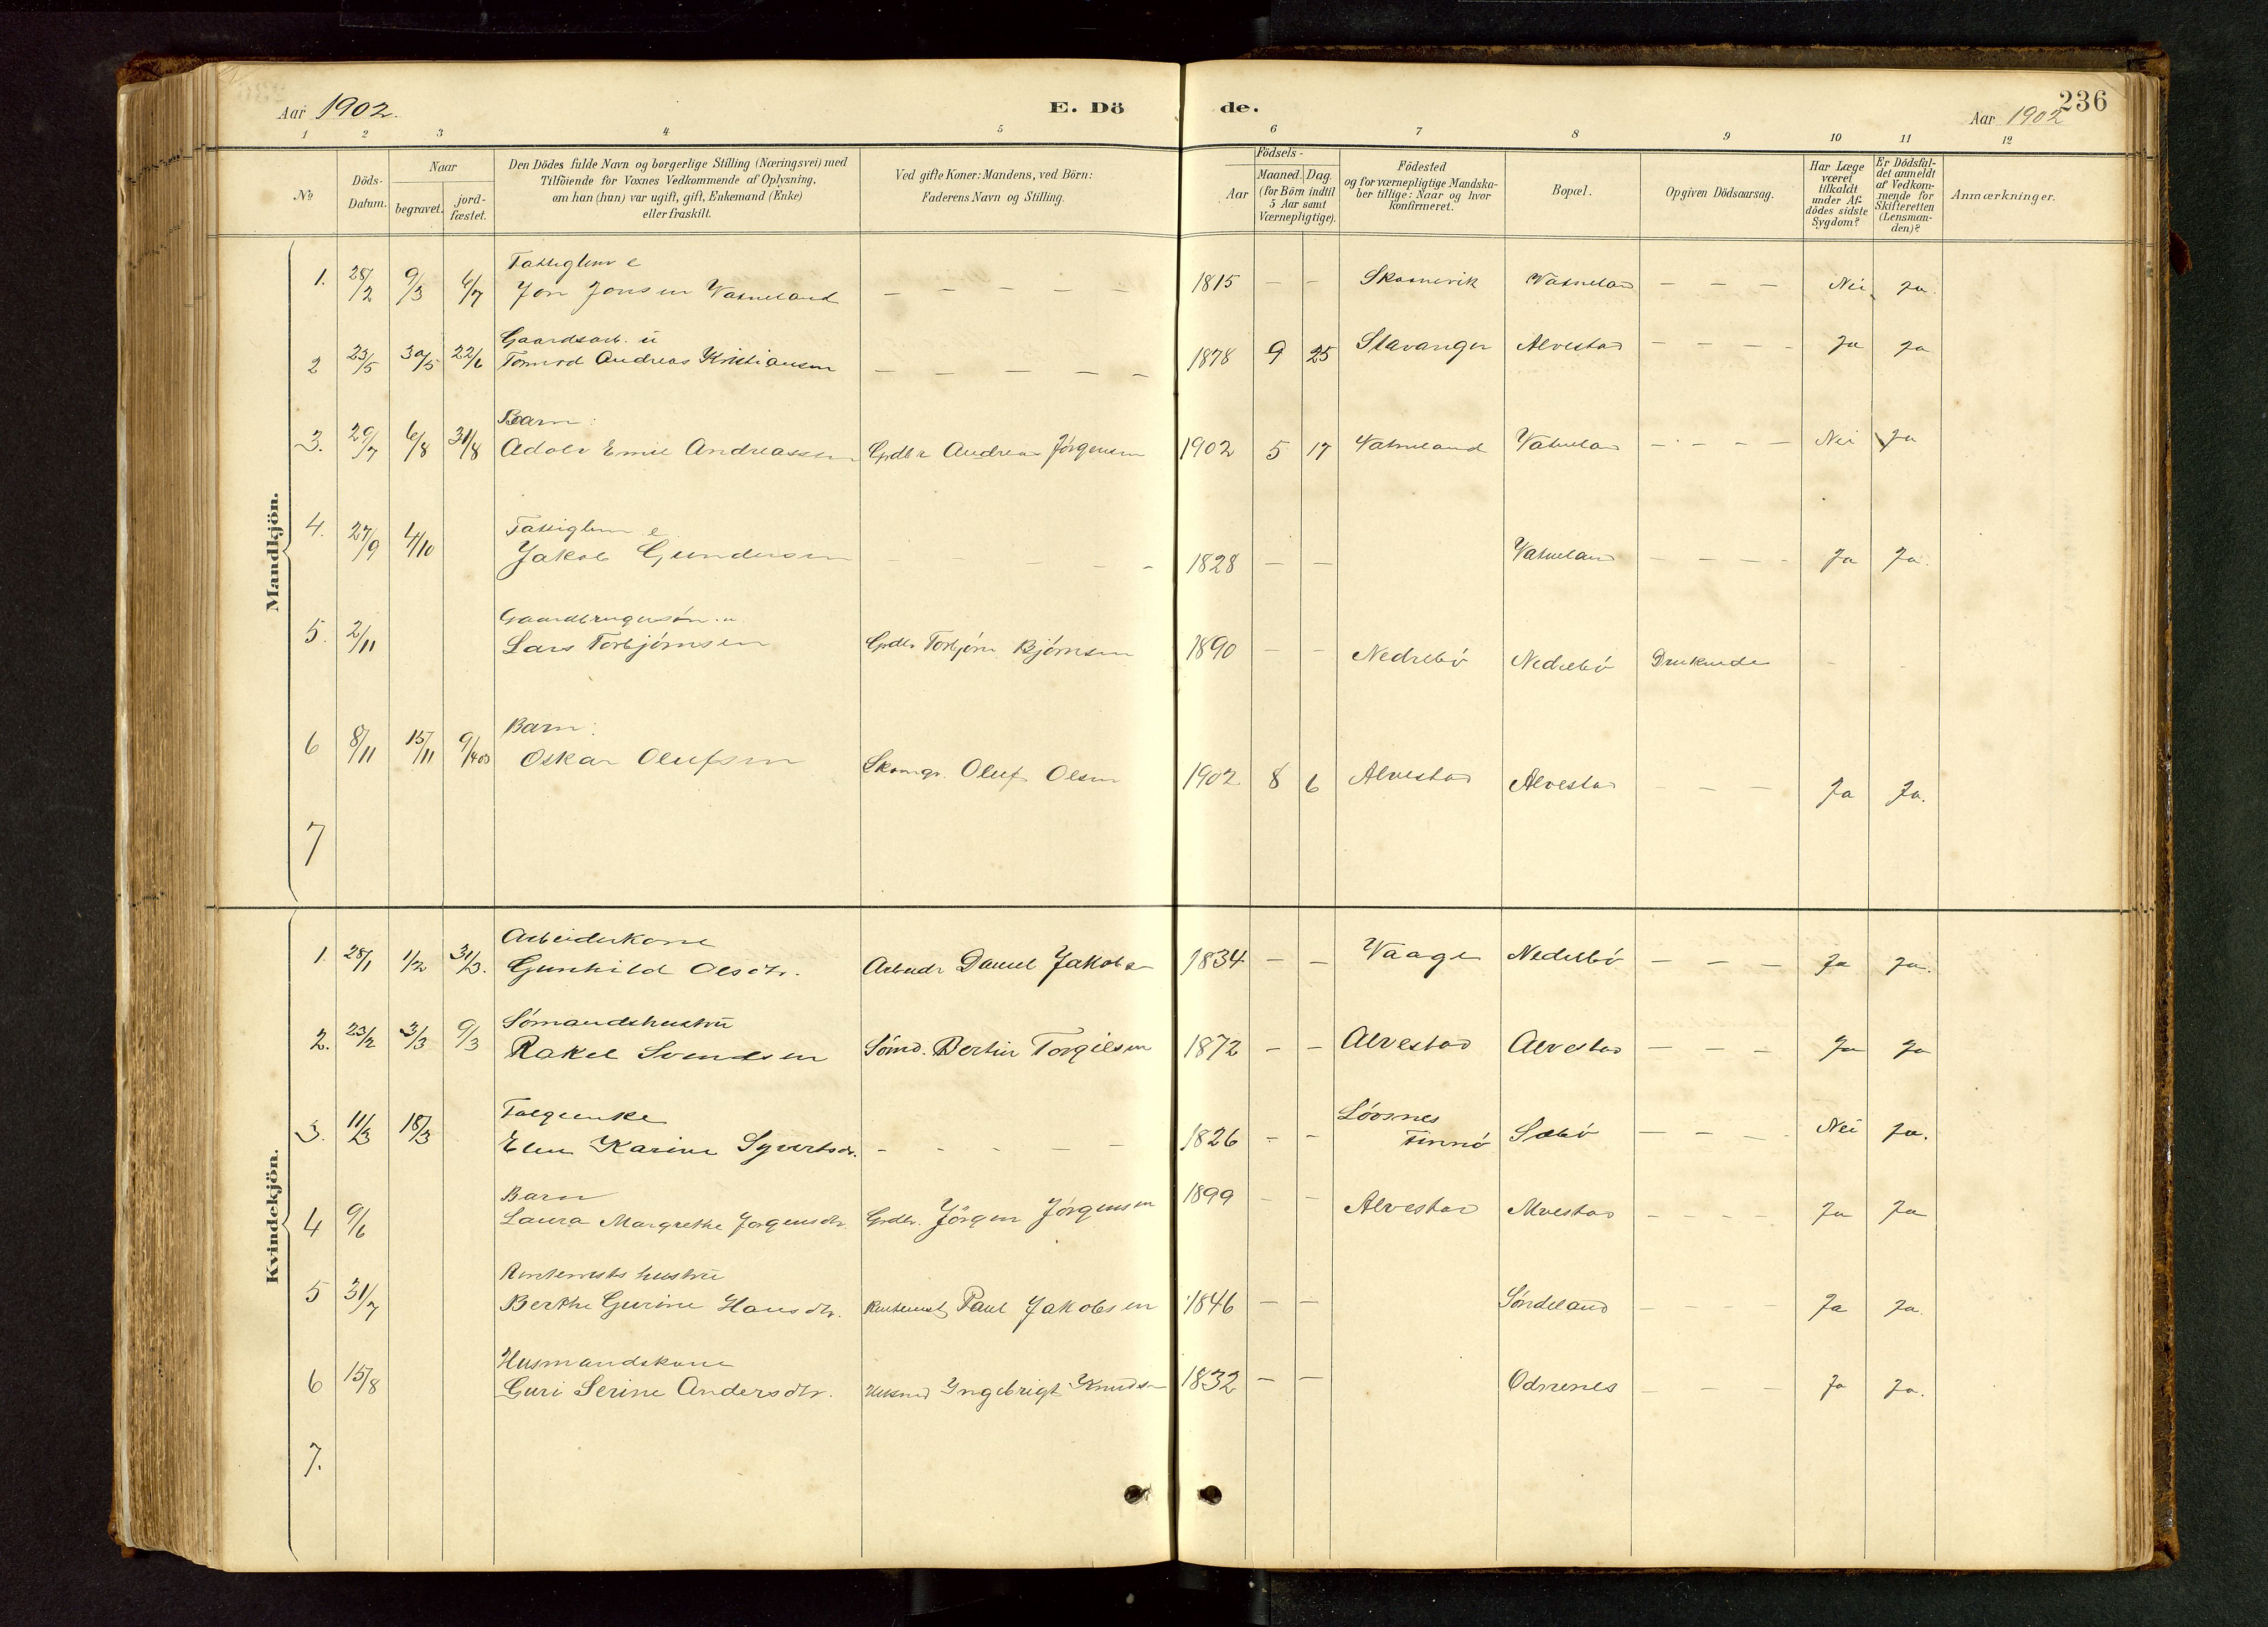 Aar 1902.
E. Dö de.
Aar 1902
236
1 2 3 4 5 6 7 8 9 10 11 12
№
Döds-Datum.
Naar
begravet.
jord-fæstet.
Den Dödes fulde Navn og borgerlige Stilling (Næringsvei) med
Tilföiende for Voxnes Vedkommende af Oplysning,
om han (hun) var ugift, gift, Enkemand (Enke)
eller fraskilt.
Ved gifte Koner: Mandens, ved Börn:
Faderens Navn og Stilling.
Födsels-
Aar
Maaned. Dag.
(for Börn indtil
5 Aar samt
Værnepligtige).
Födested
og for værnepligtige Mandska-
ber tillige: Naar og hvor
konfirmeret.
Bopæl.
Opgiven Dödsaarsag.
Har Læge
været
tilkaldt
under Af-
dödes sidste
Sygdom?
Er Dödsfal-
det anmeldt
af Vedkom-
mende for
Skifteretten
(Lensman-
den)?
Anmærkninger.
Mandkjön.
Fattiglem e
1. 28/2 9/3 6/7 Jon Jonsen Vatneland — — — — — 1815 — — Vatneland — — — Nei Ja.
Gaardsarb. u
2 23/5 30/5 22/6 Andreas Kristiansen — — — — — 1878 9 25 Stavanger Alvestad — — — - Ja Ja
Barn:
3. 29/7 6/8 31/8 Adolv Emil Andreassen Grdbr Andreas Jörgensen 1902 5 17 Vatneland Vatneland — - — — Nei Ja
Fattiglem e.
4. 27/9 4/10 Jakob Gundersen - - - - 1828 — — Vatneland — — — - Ja Ja.
Gaardbrugersön. u
5. 2/11 Lars Torbjörnsen Grdbr Torbjörn Björnsen 1890 — - Nedrebö Nedrebö Druknede - -
Barn:
6 8/11 15/11 9/4 03 Oskar Olufsen Skomgr. Oluf Olsen 1902 8 6 Alvestad Alvestad - — — Ja Ja.
7
Kvindekjön.
Arbeiderkone
1. 28/1 1/2 31/3. Gunhild Olsdtr. Arbeidr Daniel Jakobsen 1834 — — Vaage Nedrebö — — — Ja Ja.
Sömandshustru
2. 23/2 3/3 9/3 Rakel Svendsen Sömd. Bertin Torgilsen 1872 — — Alvestad Alvestad — — — Ja Ja
3. 11/3 18/3 Elen Karine Syvertsdr. - - - — — 1826 - - Finnö Sæbö — — — - Nei Ja.
Barn
4 9/6 Laura Margrethe Jörgensdtr. Grdbr. Jörgen Jörgensen 1899 — — Alvestad Alvestad — - - - Ja Ja
Rentenists hustru
5 31/7 Berthe Gurine Hansdtr. Rentenist Paul Jakobsen 1846 — — Söndeland — - — — Ja Ja.
Husmandskone
6 15/8 Guri Serine Andersdtr. Husmd Ingebrigt Knudsen 1832 — — Odnenes — — — - Ja Ja.
7.